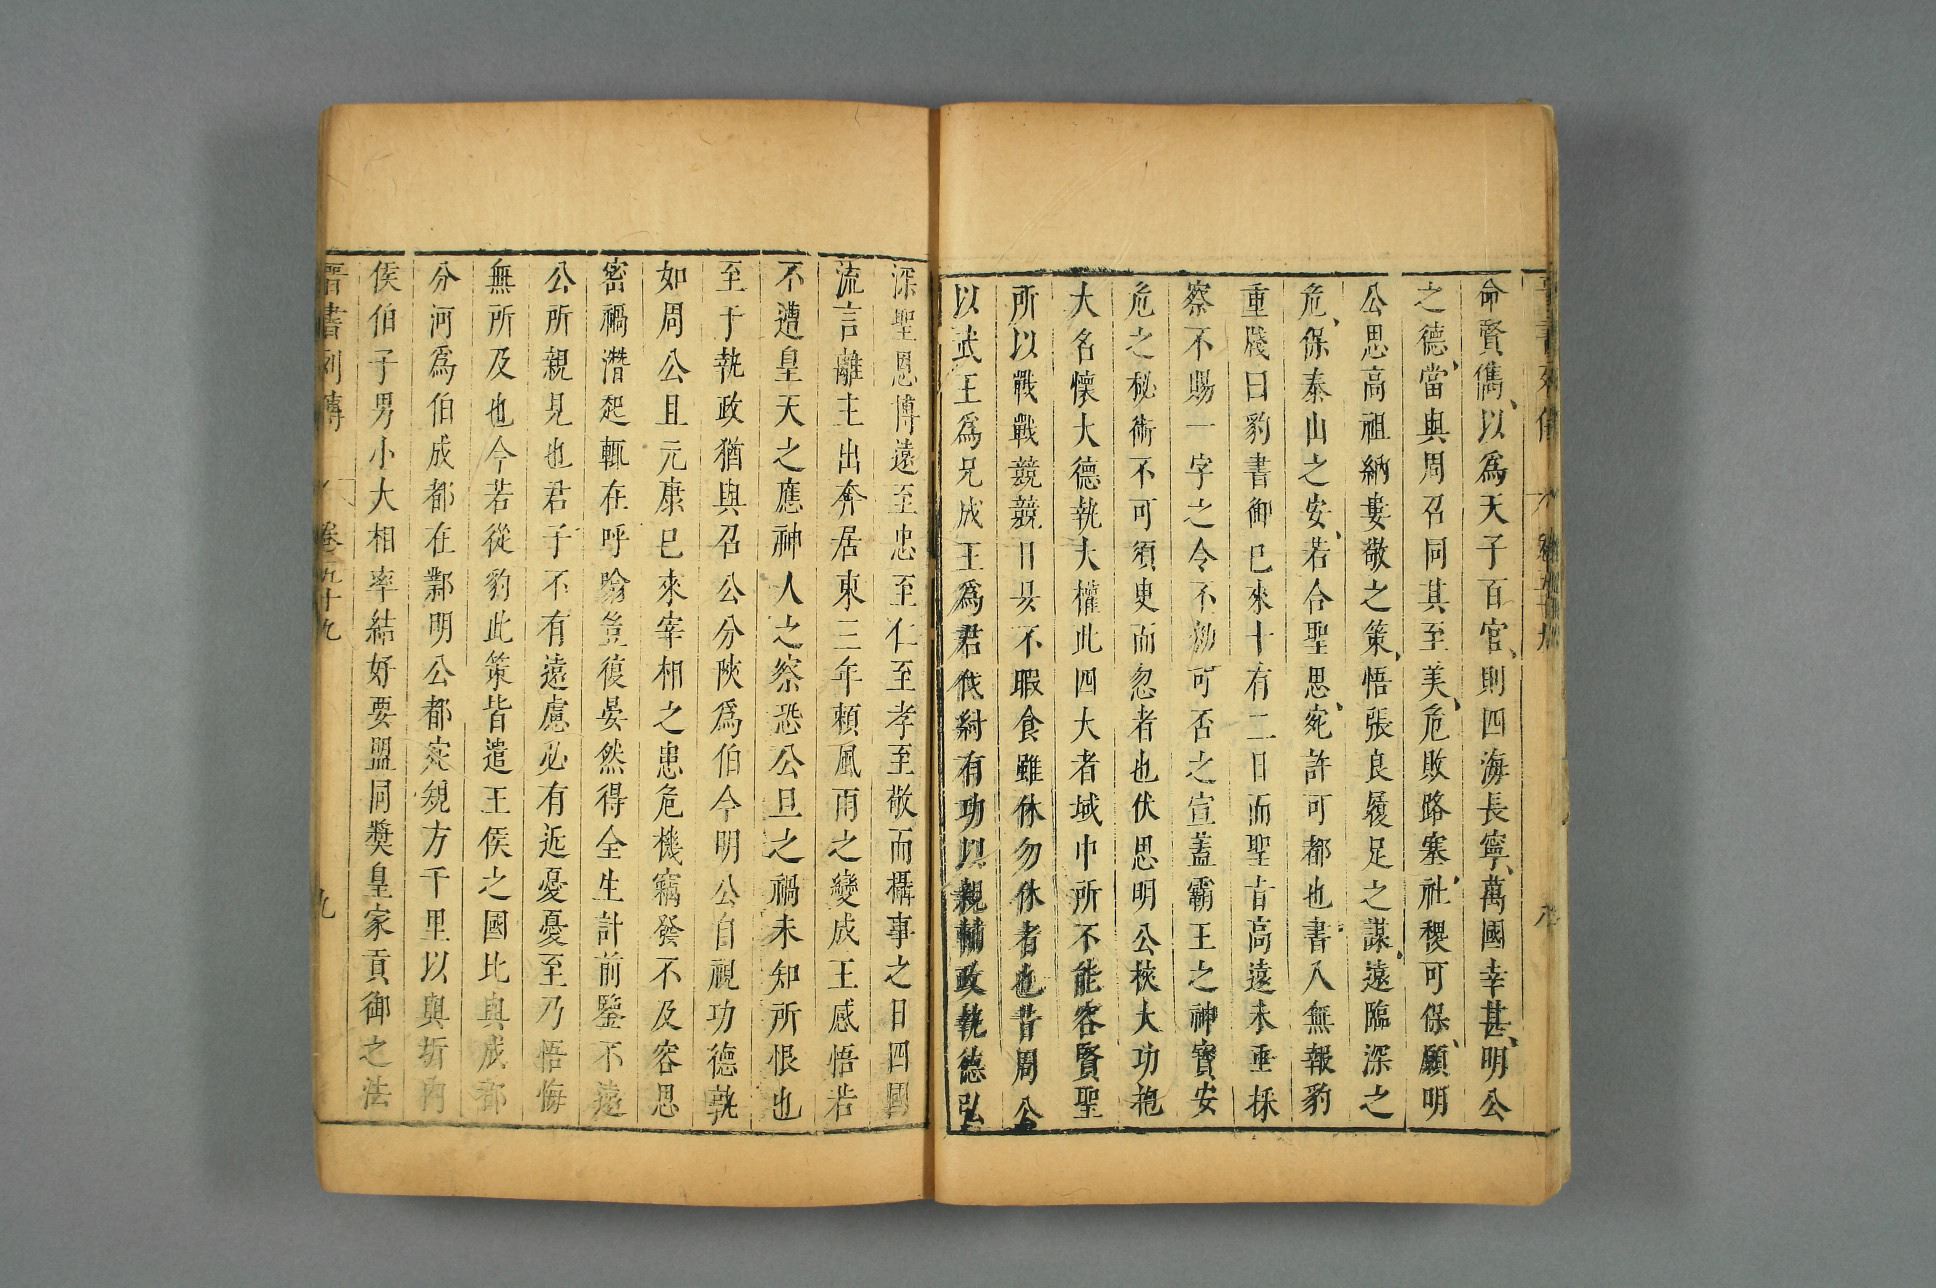 命賢儁以爲天子百官則四海長寧萬國幸甚明公
之德當與周召同其至美危敗路塞社稷可保願明
公思高祖納婁敬之策悟張良履足之謀遠臨深之
危保泰山之安若合聖思宛許可都也書入無報豹
重牋曰豹書御已來十有二日而聖旨高遠未垂採
察不賜一字之令不勑可否之宣蓋霸王之神寶安
危之秘術不可須臾而忽者也伏思明公挾大功抱
大名懷大德執大權此四大者域中所不能容賢聖
所以戰戰兢兢日昃不暇食雖休勿休者也昔周公
以武王爲兄成王爲君伐紂有功以親輔政執德弘
深聖恩博遠至忠至仁至孝至敬而攝事之日四國
流言離主出奔居東三年賴風雨之變成王感悟若
不遭皇天之應神人之察恐公旦之禍未知所恨也
至于執政猶與召公分陝爲伯今明公自視功德孰
如周公且元康已來宰相之患危機竊發不及容思
密禍潛起輒在呼噏豈復晏然得全生計前鑒不遠
公所親見也君子不有遠慮必有近憂憂至乃悟悔
無所及也今若從豹此策皆遣王侯之國比與成都
分河爲伯成都在鄴明公都宛寛方千里以與圻內
侯伯子男小大相率結好要盟同奬皇家貢御之法
晋書列傳 卷五十九 九